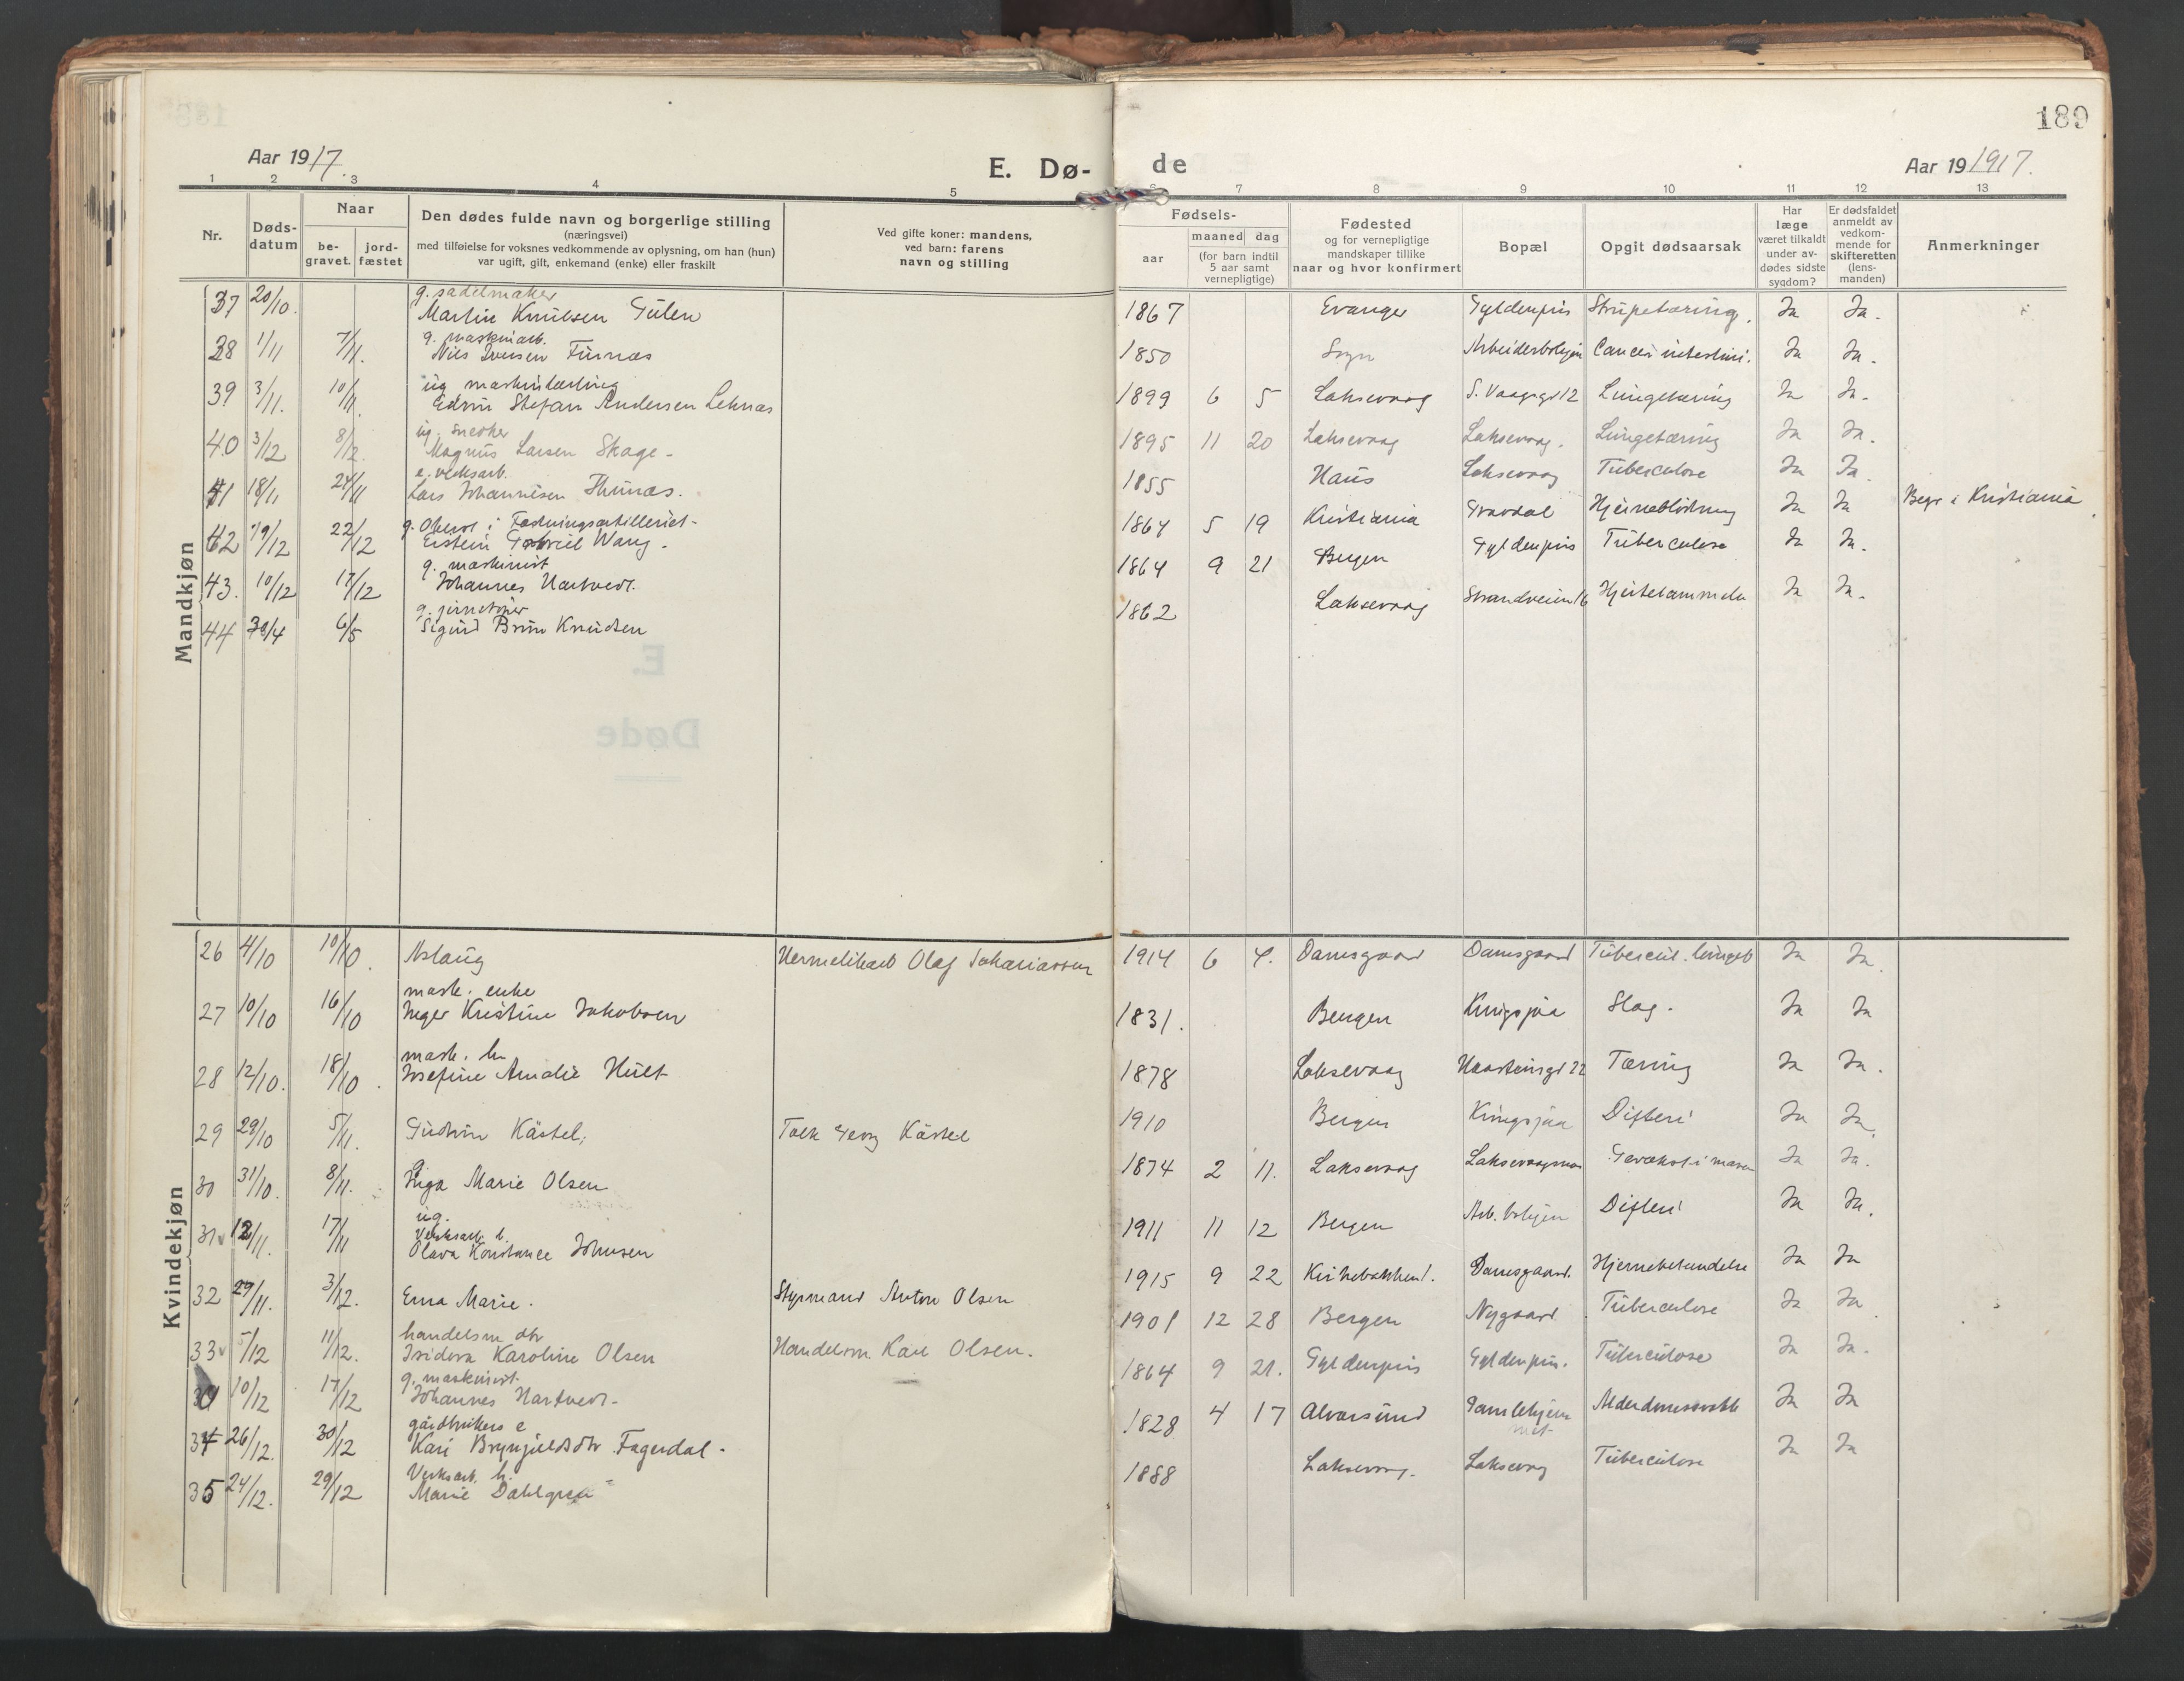 189
Aar 1917.
E. Dø-
de
Aar 19 1917.
1 2 3 4 5 6 7 8 9 10 11 12 13
Nr.
Døds-
datum
Naar
be-
gravet.
jord-
fæstet
Den dødes fulde navn og borgerlige stilling
(næringsvei)
med tilføielse for voksnes vedkommende av oplysning, om han (hun)
var ugift, gift, enkemand (enke) eller fraskilt
Ved gifte koner: mandens,
ved barn: farens
navn og stilling
Fødsels-
aar
maaned dag
(for barn indtil
5 aar samt
vernepligtige)
Fødested
og for vernepligtige
mandskaper tillike
naar og hvor konfirmert
Bopæl
Opgit dødsaarsak
Har
læge
været tilkaldt
under av-
dødes sidste
sygdom?
Er dødsfaldet
anmeldt av
vedkom-
mende for
skifteretten
(lens-
manden)
Anmerkninger
Mandkjøn
g. sadelmaker
37 20/10. Martin Knutsen Gulen 1867 Evanger Gyldenpris Strupetæring. Ja Ja.
g. maskinarb.
38 1/11 7/11. Nils Iversen Furnæs 1850 Sogn Arbeiderboligen Cancer intestini. Ja Ja.
ug maskinlærling
39 3/11. 10/11. Edvin Stefan Andersen Leknæs 1899 6 5 Laksevaag S. Vaagsgd 12 Lungetæring Ja Ja.
ug. snedker
40 3/12 8/12. Magnus Larsen Skage - 1895 11 20 Laksevaag Laksevaag. Lungetæring Ja Ja.
e. verksarb.
41 18/11 24/11 Lars Johannesen Thunæs. 1855 Haus Laksevaag Tuberculose Ja Ja.
g. Oberst i Fæstningsartilleriet-
42 19/12 22/12 Eistein Gabriel Wang. 1864 5 19 Kristiania Gravdal Hjerneblödning Ja Ja Begr i Kristiania
g. maskinist
43. 10/12 17/12 Johannes Hartvedt. 1864 9 21 Bergen Gyldenpris Tuberculose Ja Ja.
44 30/4 6/5 Sigurd Brun Knudsen 1862 Laksevaag Strandveien 16 Ja Ja.
E.
Døde
Kvindekjøn
26 4/10 10/10. Aslaug Olaf Sakariassen 1914 6 4. Damsgaard Damsgaard Tubercul. Ja Ja.
mask. enke
27 10/10 16/10 Inger Kristine Jakobsen 1831. Bergen Kringsjaa Slag. Ja Ja
mask. h.
28 12/10. 18/10. Josefine Amalie Hult 1878 Laksevaag Tæring Ja Ja.
29 29/10 5/11. Gudrun Kästel, Tolk Georg Kästel 1910 Bergen Kringsjaa Difteri Ja Ja.
g.
30 31/10. 8/11. Inga Marie Olsen 1874 2 11. Laksevaag Laksevaagsnes Gevækst i maven Ja Ja.
ug.
Verksarb. h.
31 12/11. 17/11 Olava Konstance Johnsen 1911 11 12 Bergen Arb. boligen Difteri Ja Ja.
32 29/11. 3/12. Erna Marie. Styrmand Anton Olsen 1915 9 22 Kirkebakken 1. Damsgaard. Hjernebetændelse Ja Ja
handelsm dtr
33 5/12 11/12. Isidora Karoline Olsen Handelsm Karl Olsen. 1901 12 28 Bergen Nygaard Tuberculose Ja Ja.
g. maskinist.
34 10/12 17/12 Johannes Hartvedt- 1864 9 21. Gyldenpris Gyldenpris. Tuberculose Ja Ja.
gårdbrukers e
34 26/12. 30/12 Kari Brynjulfsdtr Fagerdal. 1828 4 17 Alversund Gamlehjemmet Ja Ja
Verksarb. h.
35 24/12. 29/12 Marie Dahlgren 1888 Laksevaag. Laksevaag Tuberculose Ja Ja